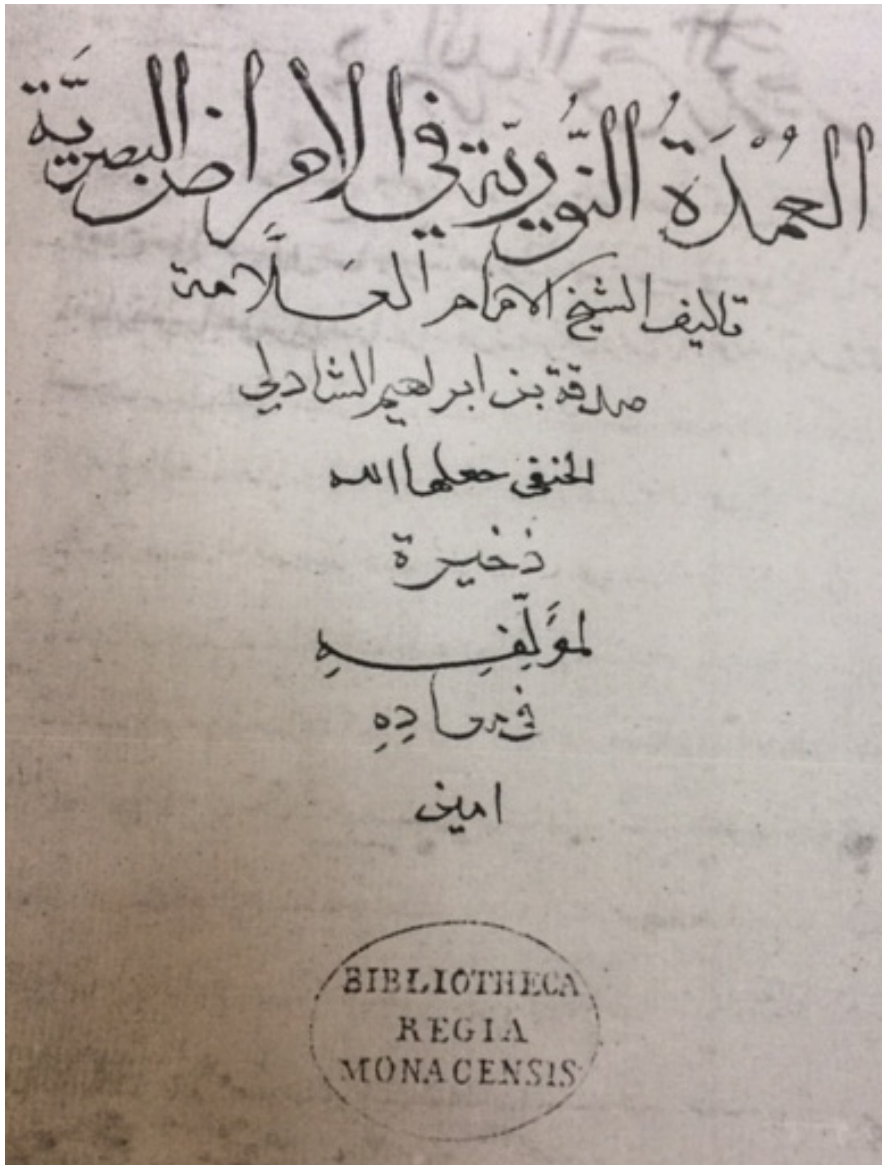 العُمْدَةُ النُّوريَّة في الامراض البصريَّة
تاليف الشيخ الامام العَلَّامة
صدقة بن ابراهيم الشادلي
الحنفي جعلها الله
ذخيرة
لمؤَلِّفِهِ
في معادِهِ
امين
BIBLIOTHECA
REGIA
MONACENSIS